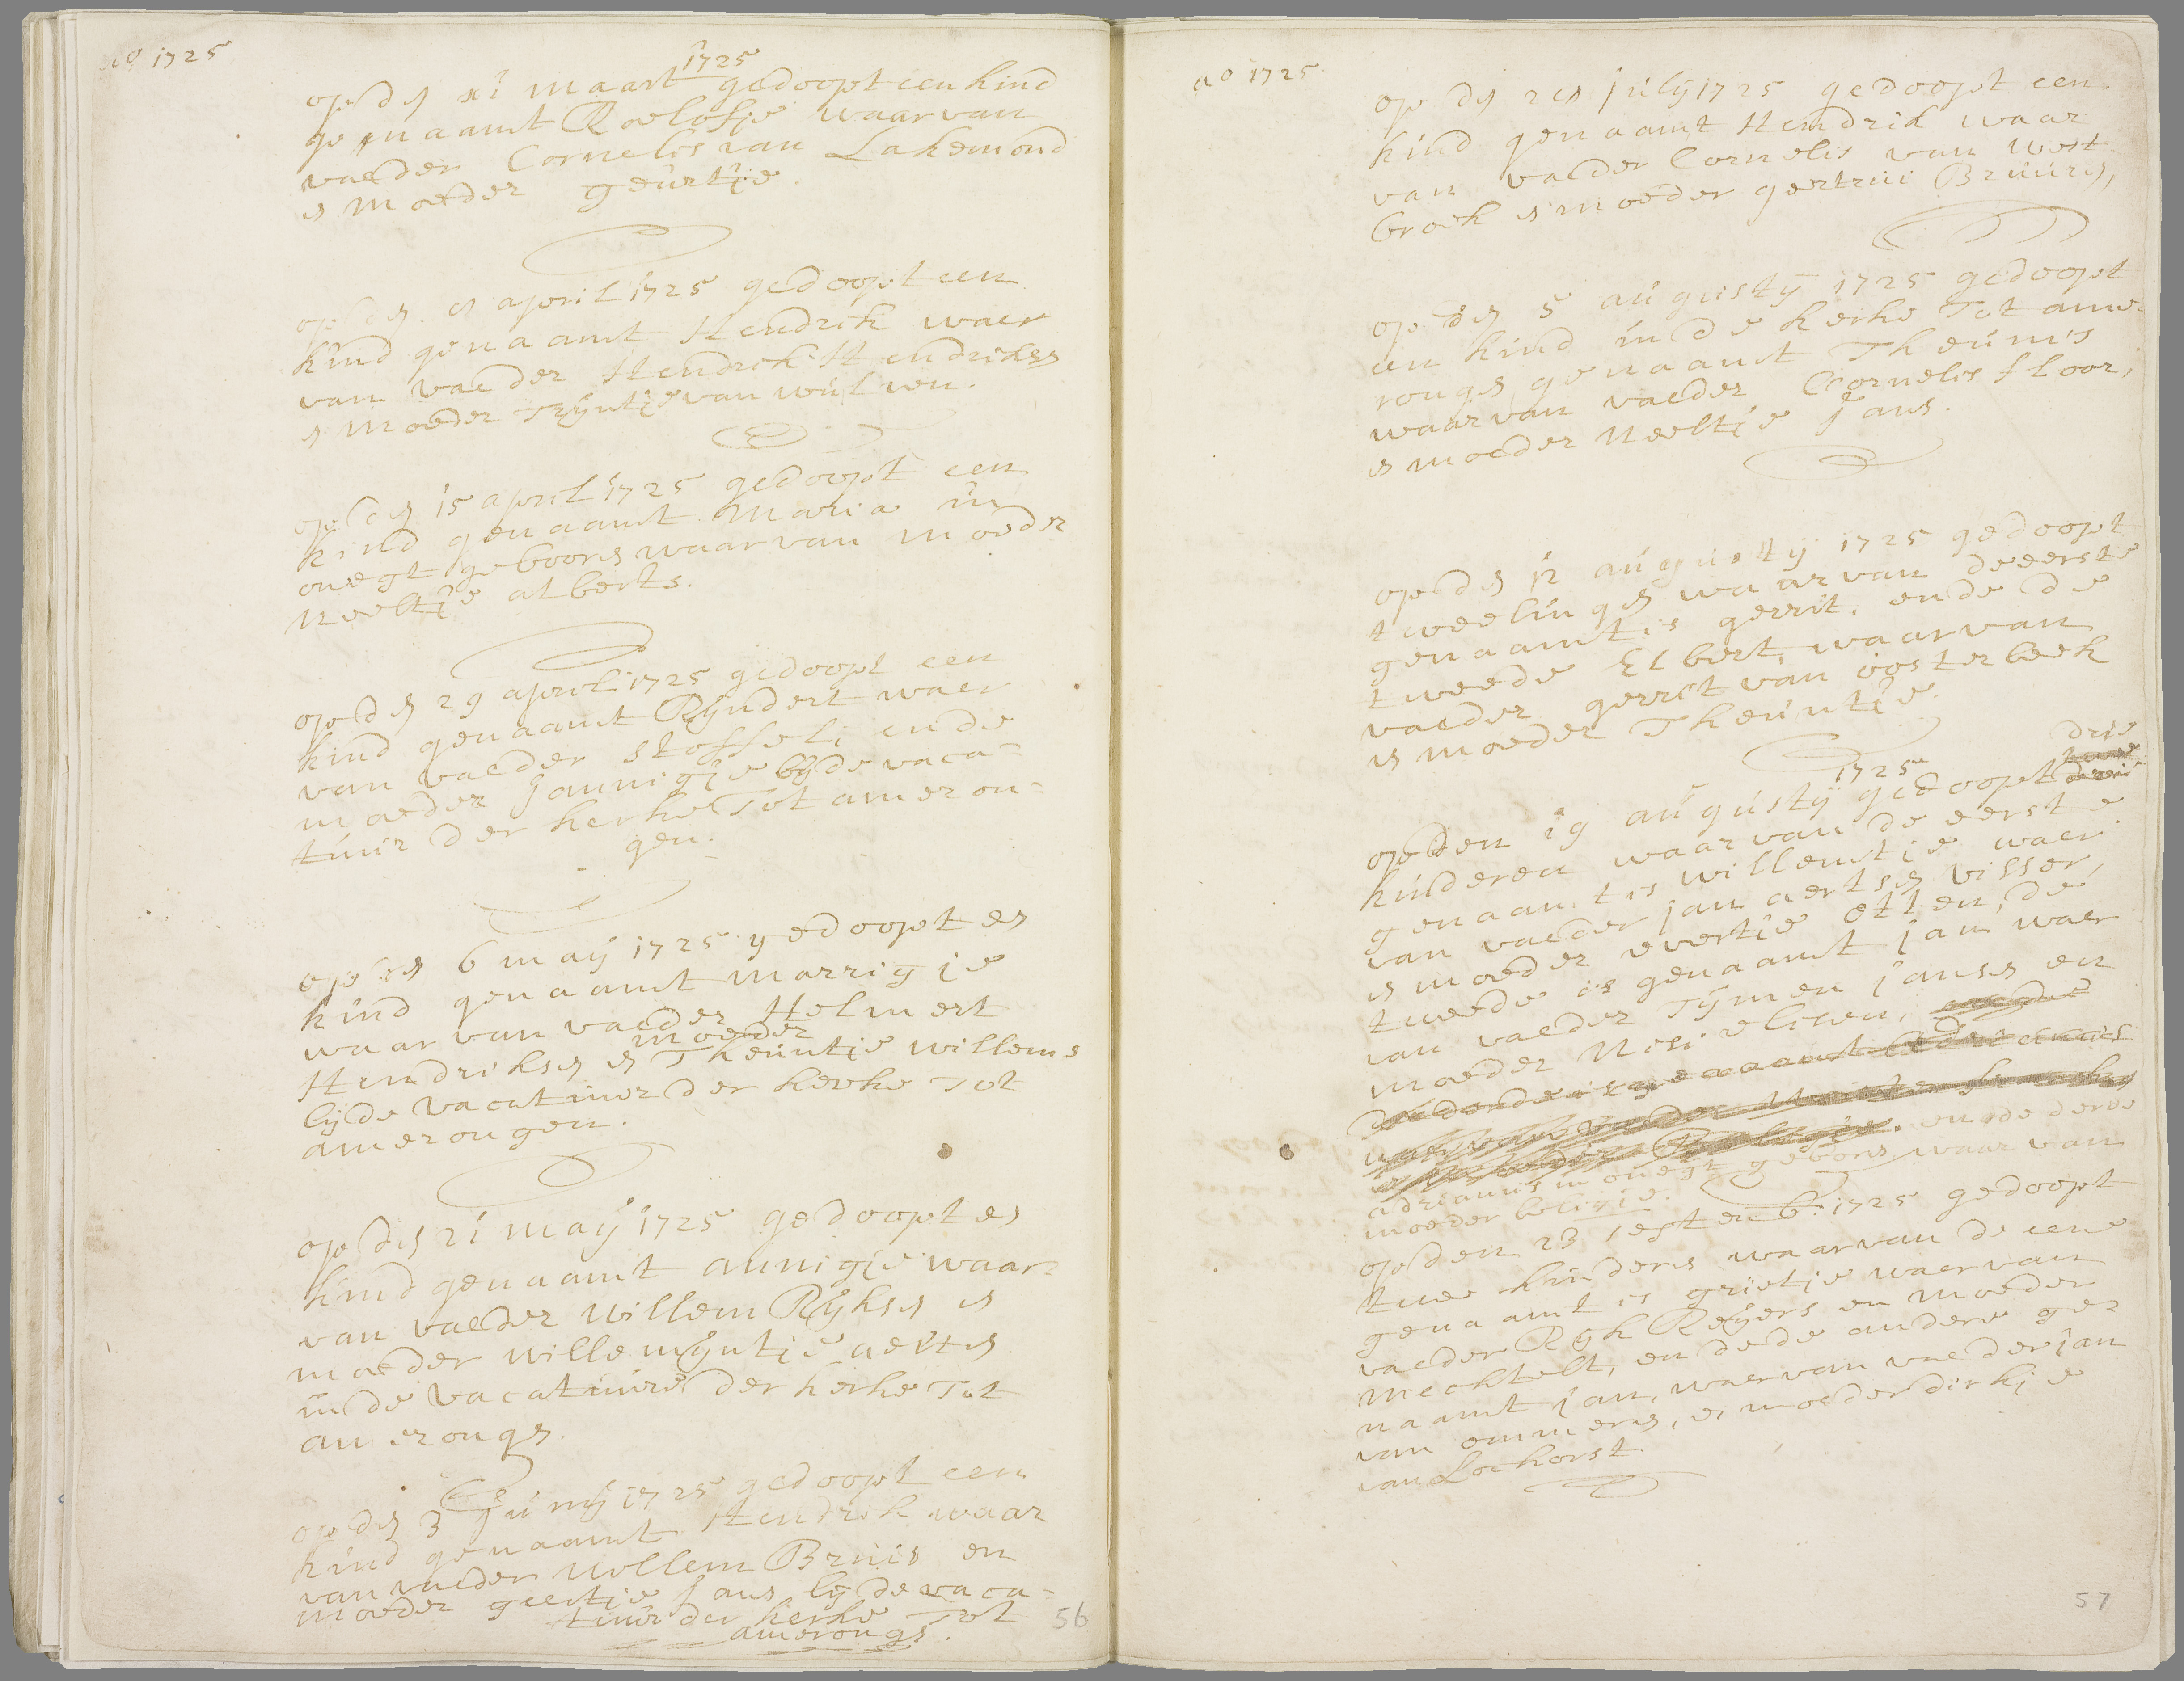 ao 1725
1725
op dn xi maart gedoopt een kind
genaamt Roelofje waar van
vaeder Cornelis van Lakemond
en moeder geurtje.
op den en april 1725 gedoopt een
kind genaamt Hendrik waer
van vaeder Hendrik Hendriksn
en moeder Trÿntje van wulven.
op den 15 april 1725 gedoopt een
kind genaamt Maria in
onegt geboorn waar van moeder
Neeltje alberts.
op dn 29 april 1725 gedoopt een
kind genaamt Rÿndert waer
van vaeder stoffeli ende
moeder Jannigje bÿ de vaca-
tuur der kerke Tot ameron-
gen.
op den 6 maÿ 1725 gedoopt en
kind genaamt marrigje
waar van vaeder Helmert
moeder
Hendriksn en Theuntje willems
bÿ de vacatuur der kerke Tot
amerongen.
op dn 21 maÿ 1725 gedoopt en
kind genaamt annigje waar-
van vaeder willem Rÿksn en
moeder willemÿntje aerts
in de vacature der kerke Tot
amerongn.
op dn 3 Junÿ 1725 gedoopt een
kind genaamt Hendrik waar
van vaeder Willem Bruis en
moeder geertje Jans bÿ de vaca-
tuur der kerke Tot
amerongn.
56
ao 1725
op dn july 1725 gedoopt een
kind genaamt Hendrik waar
van vaeder Cornelis van West
broek en moeder gertrui Bruurn,
op dn 5 augustÿ 1725 gedoopt
een kind in de kerke Tot ame-
rongn genaamt Theunis
waar van vaeder Cornelis floor,
en moeder Neeltje Jans.
op dn 12 augustÿ 1725 gedoopt
tweelingn waar van de eerste
genaamt is gerrit, ende de
tweede Elbert, waar van
vaeder gerrit van oosterbeek
en moeder Theuntje.
drie
1725
op den 19 augustÿ gedoopt
kinderen waar van de eerste
genaamt is willemtje waer
van vaeder jan aertsn visser,
en moeder evertje otten, de
tweede is genaamt jan waer
van vaeder Tÿmen jansn en
moeder
de derde is genaamt adrianus
waar van vaeder
en moeder ende derde
adrianus in onegt geborn waar van
moeder
op den 23 septemb: 1725 gedoopt
twee kindern waar van de eene
genaamt is grietje waer van
vaeder Rÿk Reÿers en moeder
Mechtelt, en de de andere ge-
naamt jan, waer van vaeder jan
van ommern, en moeder dirkje
van Lochorst.
57